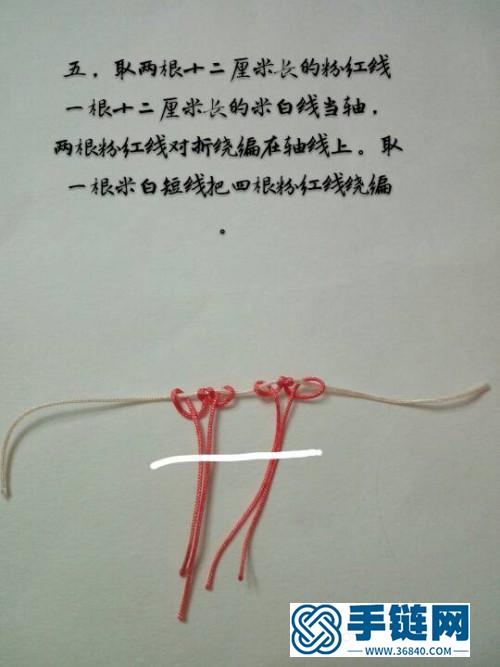 五，取两根十二厘米长的粉红线
一根十二厘米长的米白线当轴，
两根粉红线对折绕编在轴线上。取
一根米白短线把四根粉红线绕编
。
手链网
www.36840.com